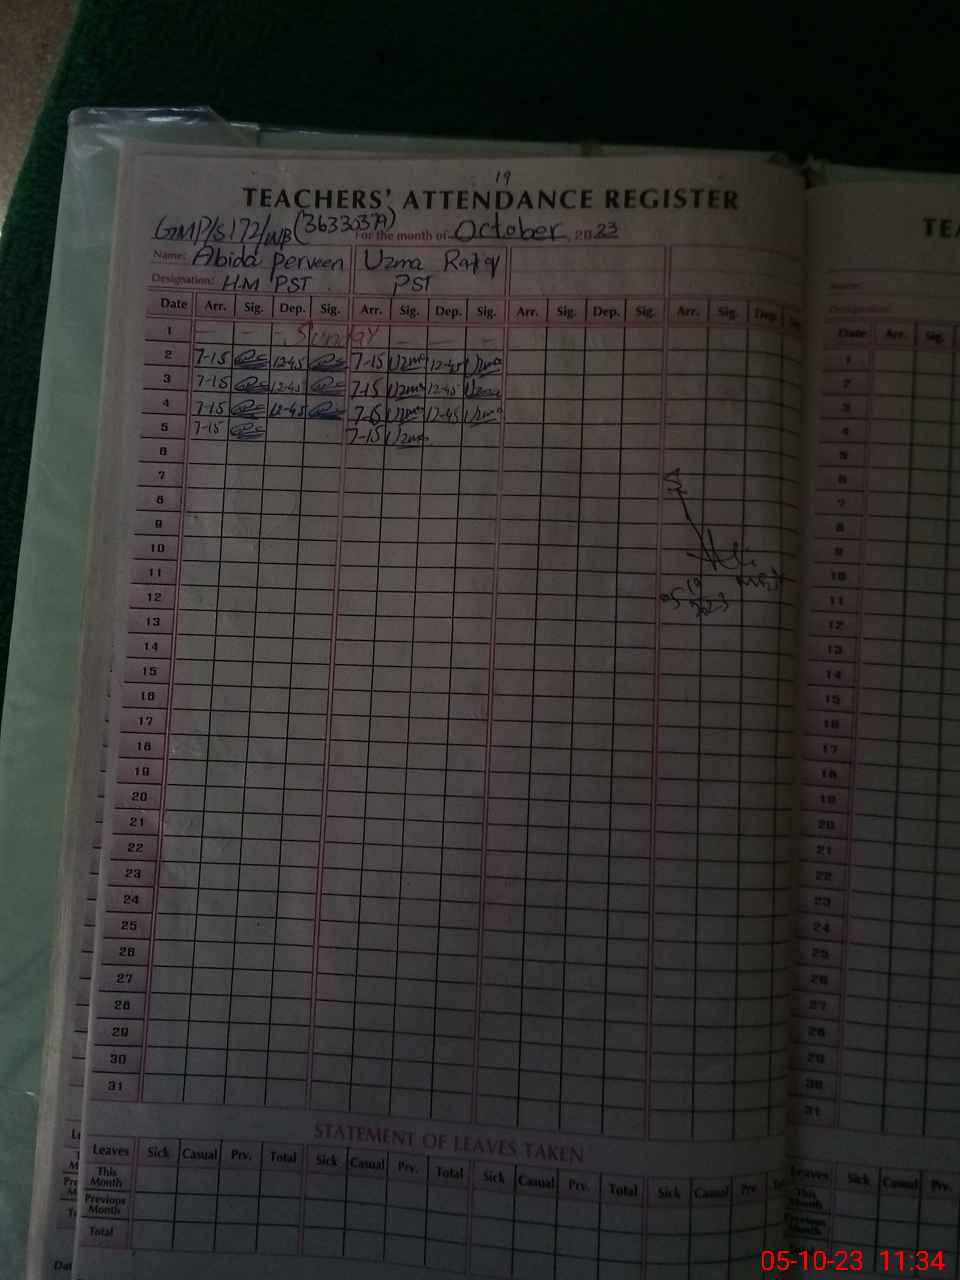 19
TEACHERS' ATTENDANCE REGISTER
GMP/S 172/WB (36330379) For the month of October, 2023
Name: Abida Perveen Uzma
Designation: HM PST PST
Date Arr. Sig. Dep. Sig. Arr. Sig. Dep. Sig. Arr. Sig. Dep. Sig. Arr. Sig. Dep.
1 - - - Sunday - - -
2 7-15 12-45 7-15 Uzma 12-45 Uzma
3 7-15 12-45 7-15 Uzma 12-45 Uzma
4 7-15 12-45 Uzma 12-45 Uzma
5 7-15 7-15 Uzma
6
7
8
9
10
11
12
13
14
15
16
17
18
19
20
21
22
23
24
25
26
27
28
29
30
31
STATEMENT OF LEAVES TAKEN
Leaves Sick Casual Prv. Total Sick Casual Prv. Total Sick Casual Prv. Total Sick Casual Prv.
This Month
Previous Month
Total
Name:
Designation:
Date Arr. Sig.
1
2
3
4
5
6
7
8
9
10
11
12
13
14
15
16
17
18
19
20
21
22
23
24
25
26
27
28
29
30
31
Leaves Sick Casual Prv.
This Month
Previous Month
Total
05-10-23 11:34